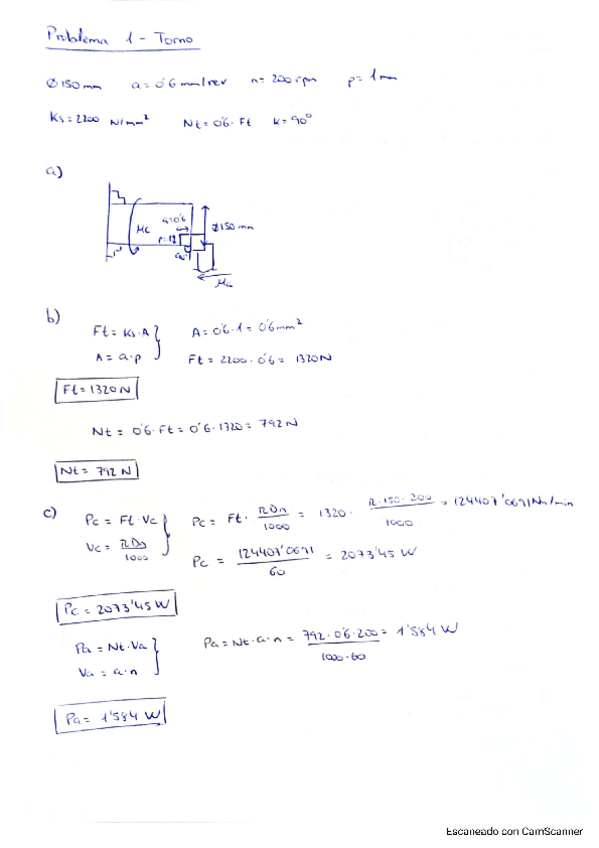 Problema 1 - Torno
Ø 150 mm a = 0'6 mm/rev n = 200 rpm p = 1 mm
Ks = 2200 N/mm² Nt = 0'6 · Ft K = 90°
a)
Mc a=0'6 Ø 150 mm
Ma
b)
Ft = Ks·A A = 0'6·1 = 0'6 mm²
A = a·p Ft = 2200·0'6 = 1320 N
Ft = 1320 N
Nt = 0'6·Ft = 0'6·1320 = 792 N
Nt = 792 N
c) Pc = Ft·Vc Pc = Ft · πDn/1000 = 1320 · π·150·200/1000 = 124407'0691 Nm/min
Vc = πDn/1000 Pc = 124407'0691/60 = 2073'45 W
Pc = 2073'45 W
Pa = Nt·Va Pa = Nt·a·n = 792·0'6·200/1000·60 = 1'584 W
Va = a·n
Pa = 1'584 W
Escaneado con CamScanner